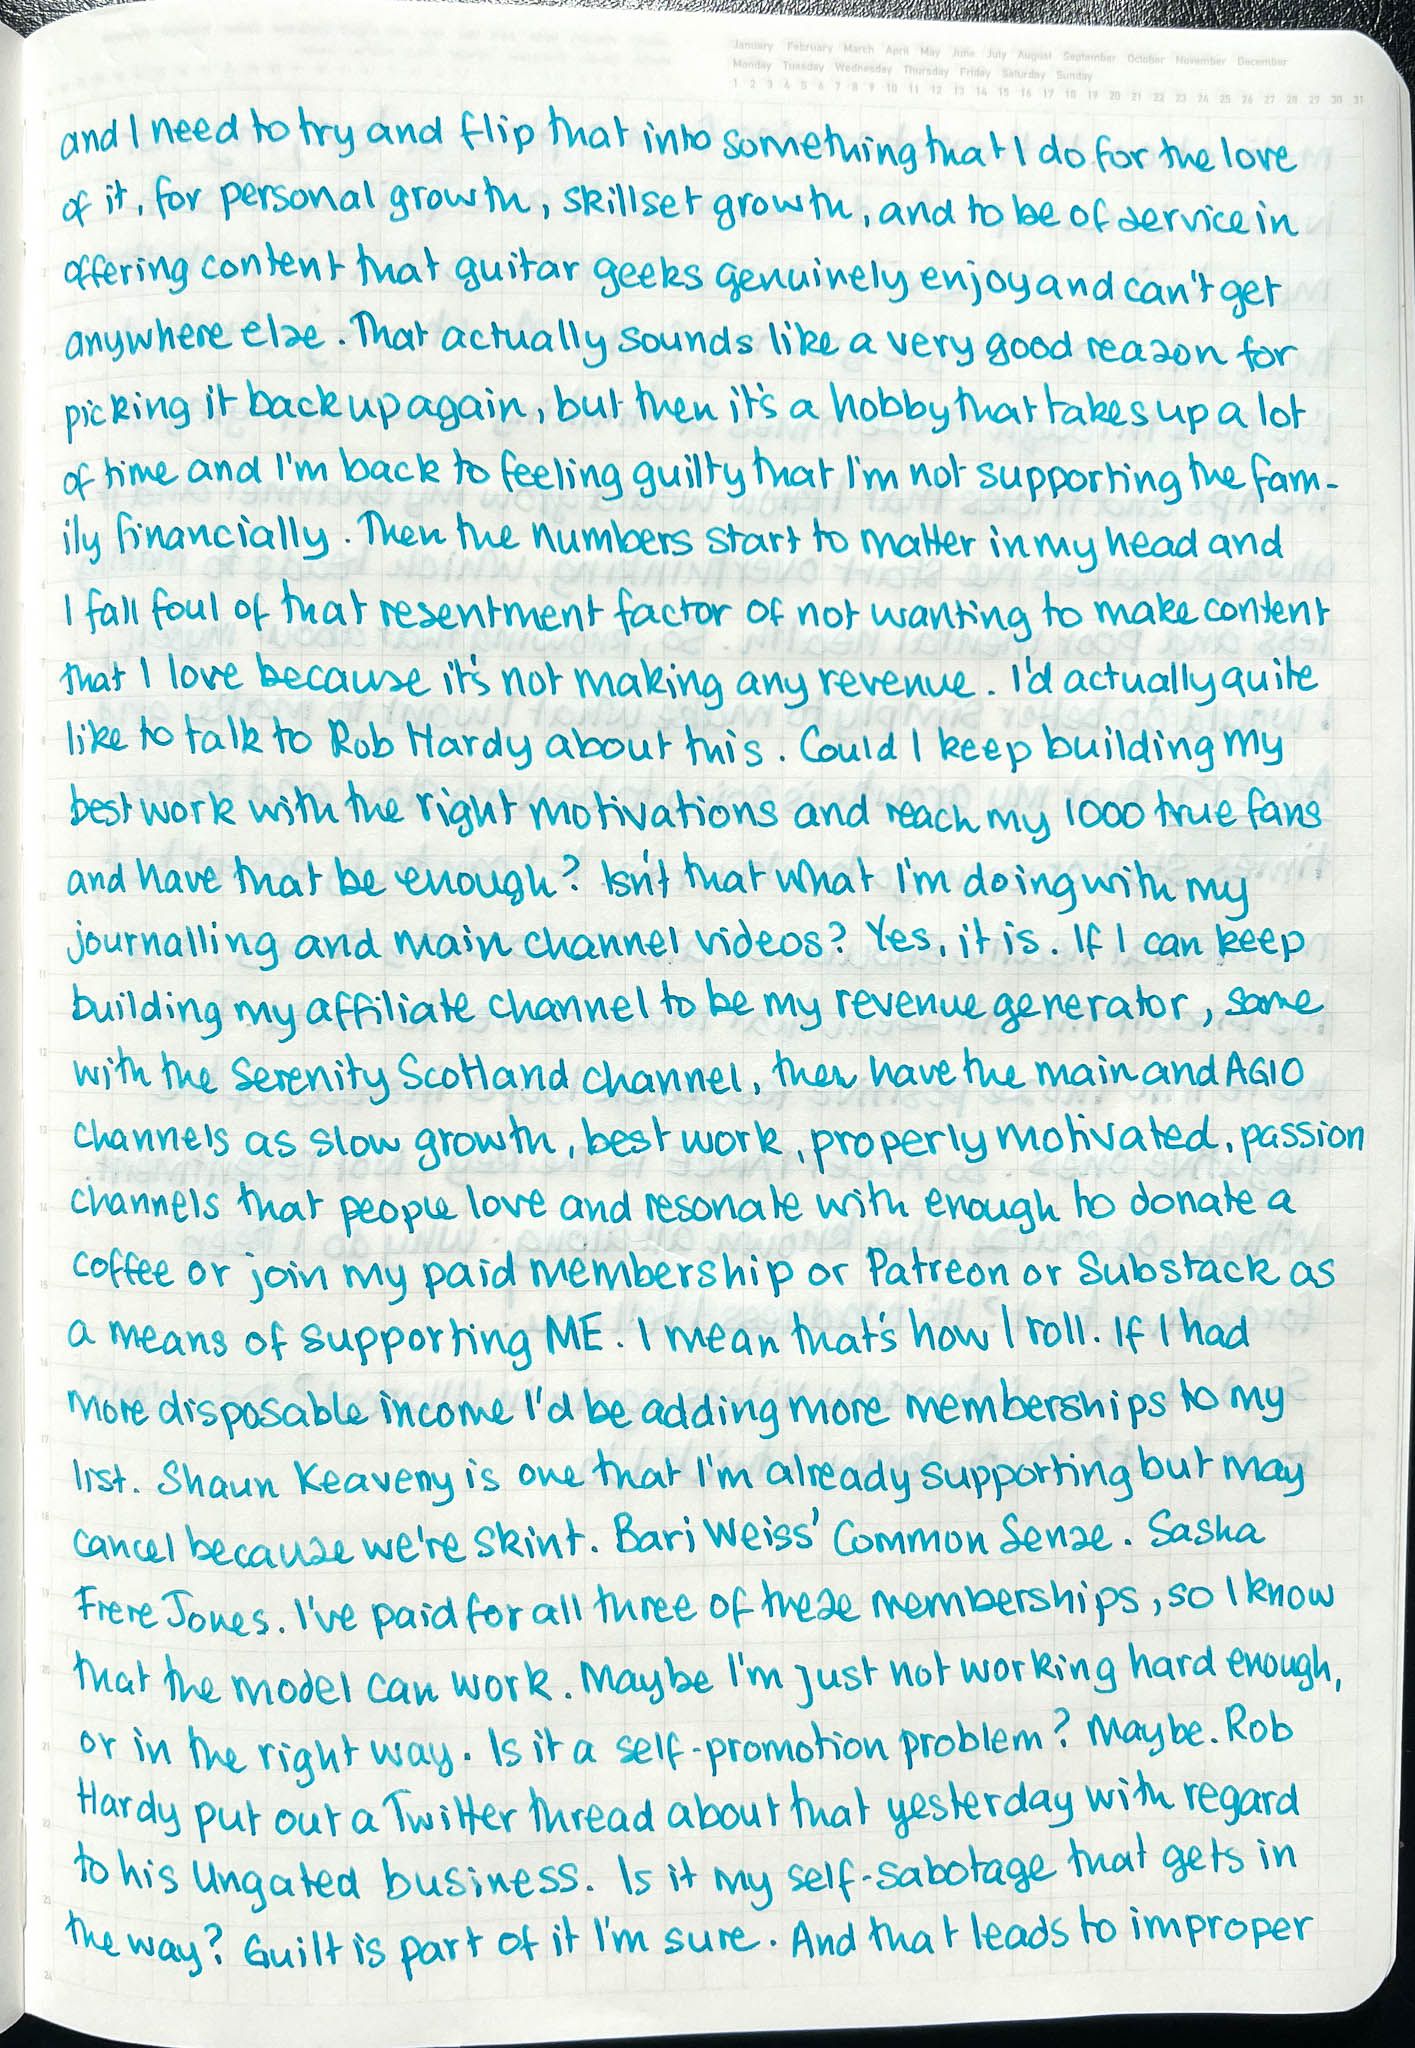 January February March April May June July August September October November December
Monday Tuesday Wednesday Thursday Friday Saturday Sunday
1 2 3 4 5 6 7 8 9 10 11 12 13 14 15 16 17 18 19 20 21 22 23 24 25 26 27 28 29 30 31
and I need to try and flip that into something that I do for the love
of it, for personal growth, skillset growth, and to be of service in
offering content that guitar geeks genuinely enjoy and can't get
anywhere else. That actually sounds like a very good reason for
picking it back up again, but then it's a hobby that takes up a lot
of time and I'm back to feeling guilty that I'm not supporting the fam-
ily financially. Then the numbers start to matter in my head and
I fall foul of that resentment factor of not wanting to make content
that I love because it's not making any revenue. I'd actually quite
like to talk to Rob Hardy about this. Could I keep building my
best work with the right motivations and reach my 1000 true fans
and have that be enough? Isn't that what I'm doing with my
journalling and main channel videos? Yes, it is. If I can keep
building my affiliate channel to be my revenue generator, same
with the Serenity Scotland channel, then have the main and AGIO
channels as slow growth, best work, properly motivated, passion
channels that people love and resonate with enough to donate a
coffee or join my paid membership or Patreon or Substack as
a means of supporting ME. I mean that's how I roll. If I had
more disposable income I'd be adding more memberships to my
list. Shaun Keaveny is one that I'm already supporting but may
cancel because we're skint. Bari Weiss' Common Sense. Sasha
Frere Jones. I've paid for all three of these memberships, so I know
that the model can work. Maybe I'm just not working hard enough,
or in the right way. Is it a self-promotion problem? Maybe. Rob
Hardy put out a Twitter thread about that yesterday with regard
to his Ungated business. Is it my self-sabotage that gets in
the way? Guilt is part of it I'm sure. And that leads to improper